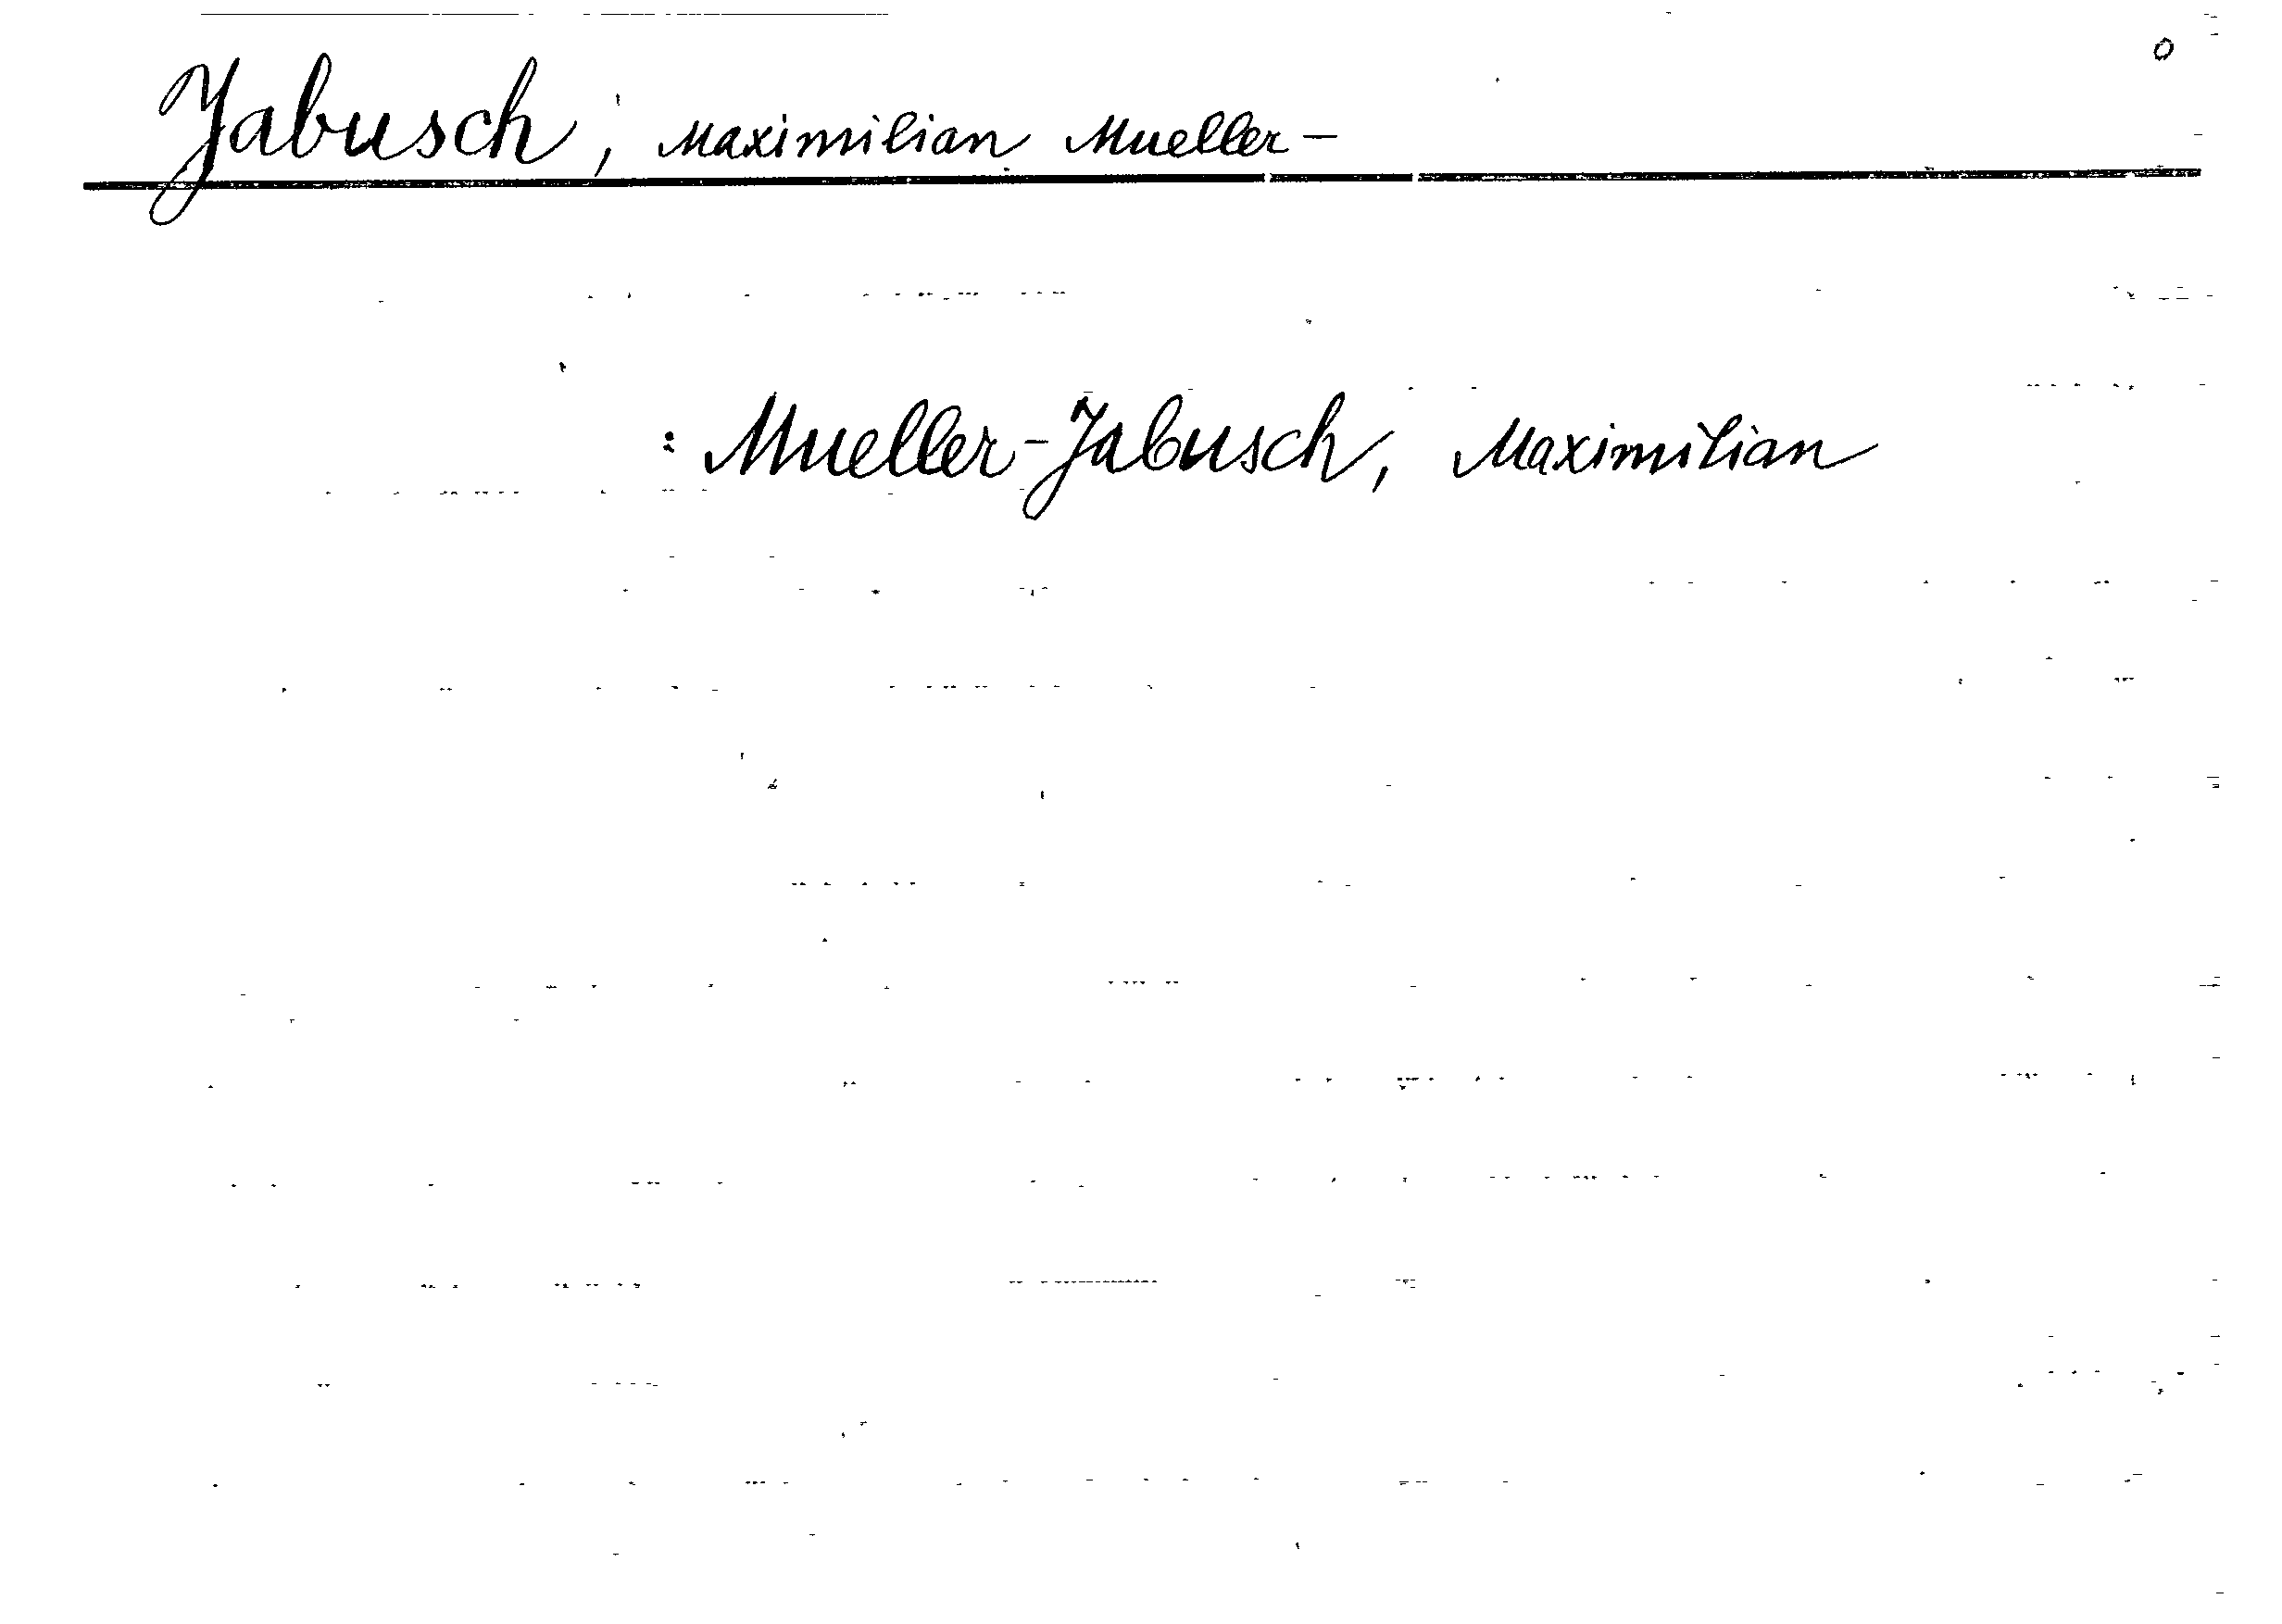 o
Jabusch, Maximilian Mueller-
: Mueller-Jabusch, Maximilian